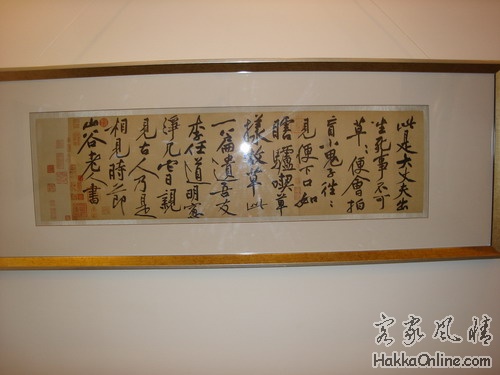 此是大丈夫出
生死事不可
草〻便會拍
盲小鬼子往〻
見便下口如
瞎驢喫草
樣故草此
一篇遺吾友
李任道明窗
淨几它日親
見古人乃是
相見時節
山谷老人書
客家风情
HakkaOnline.com